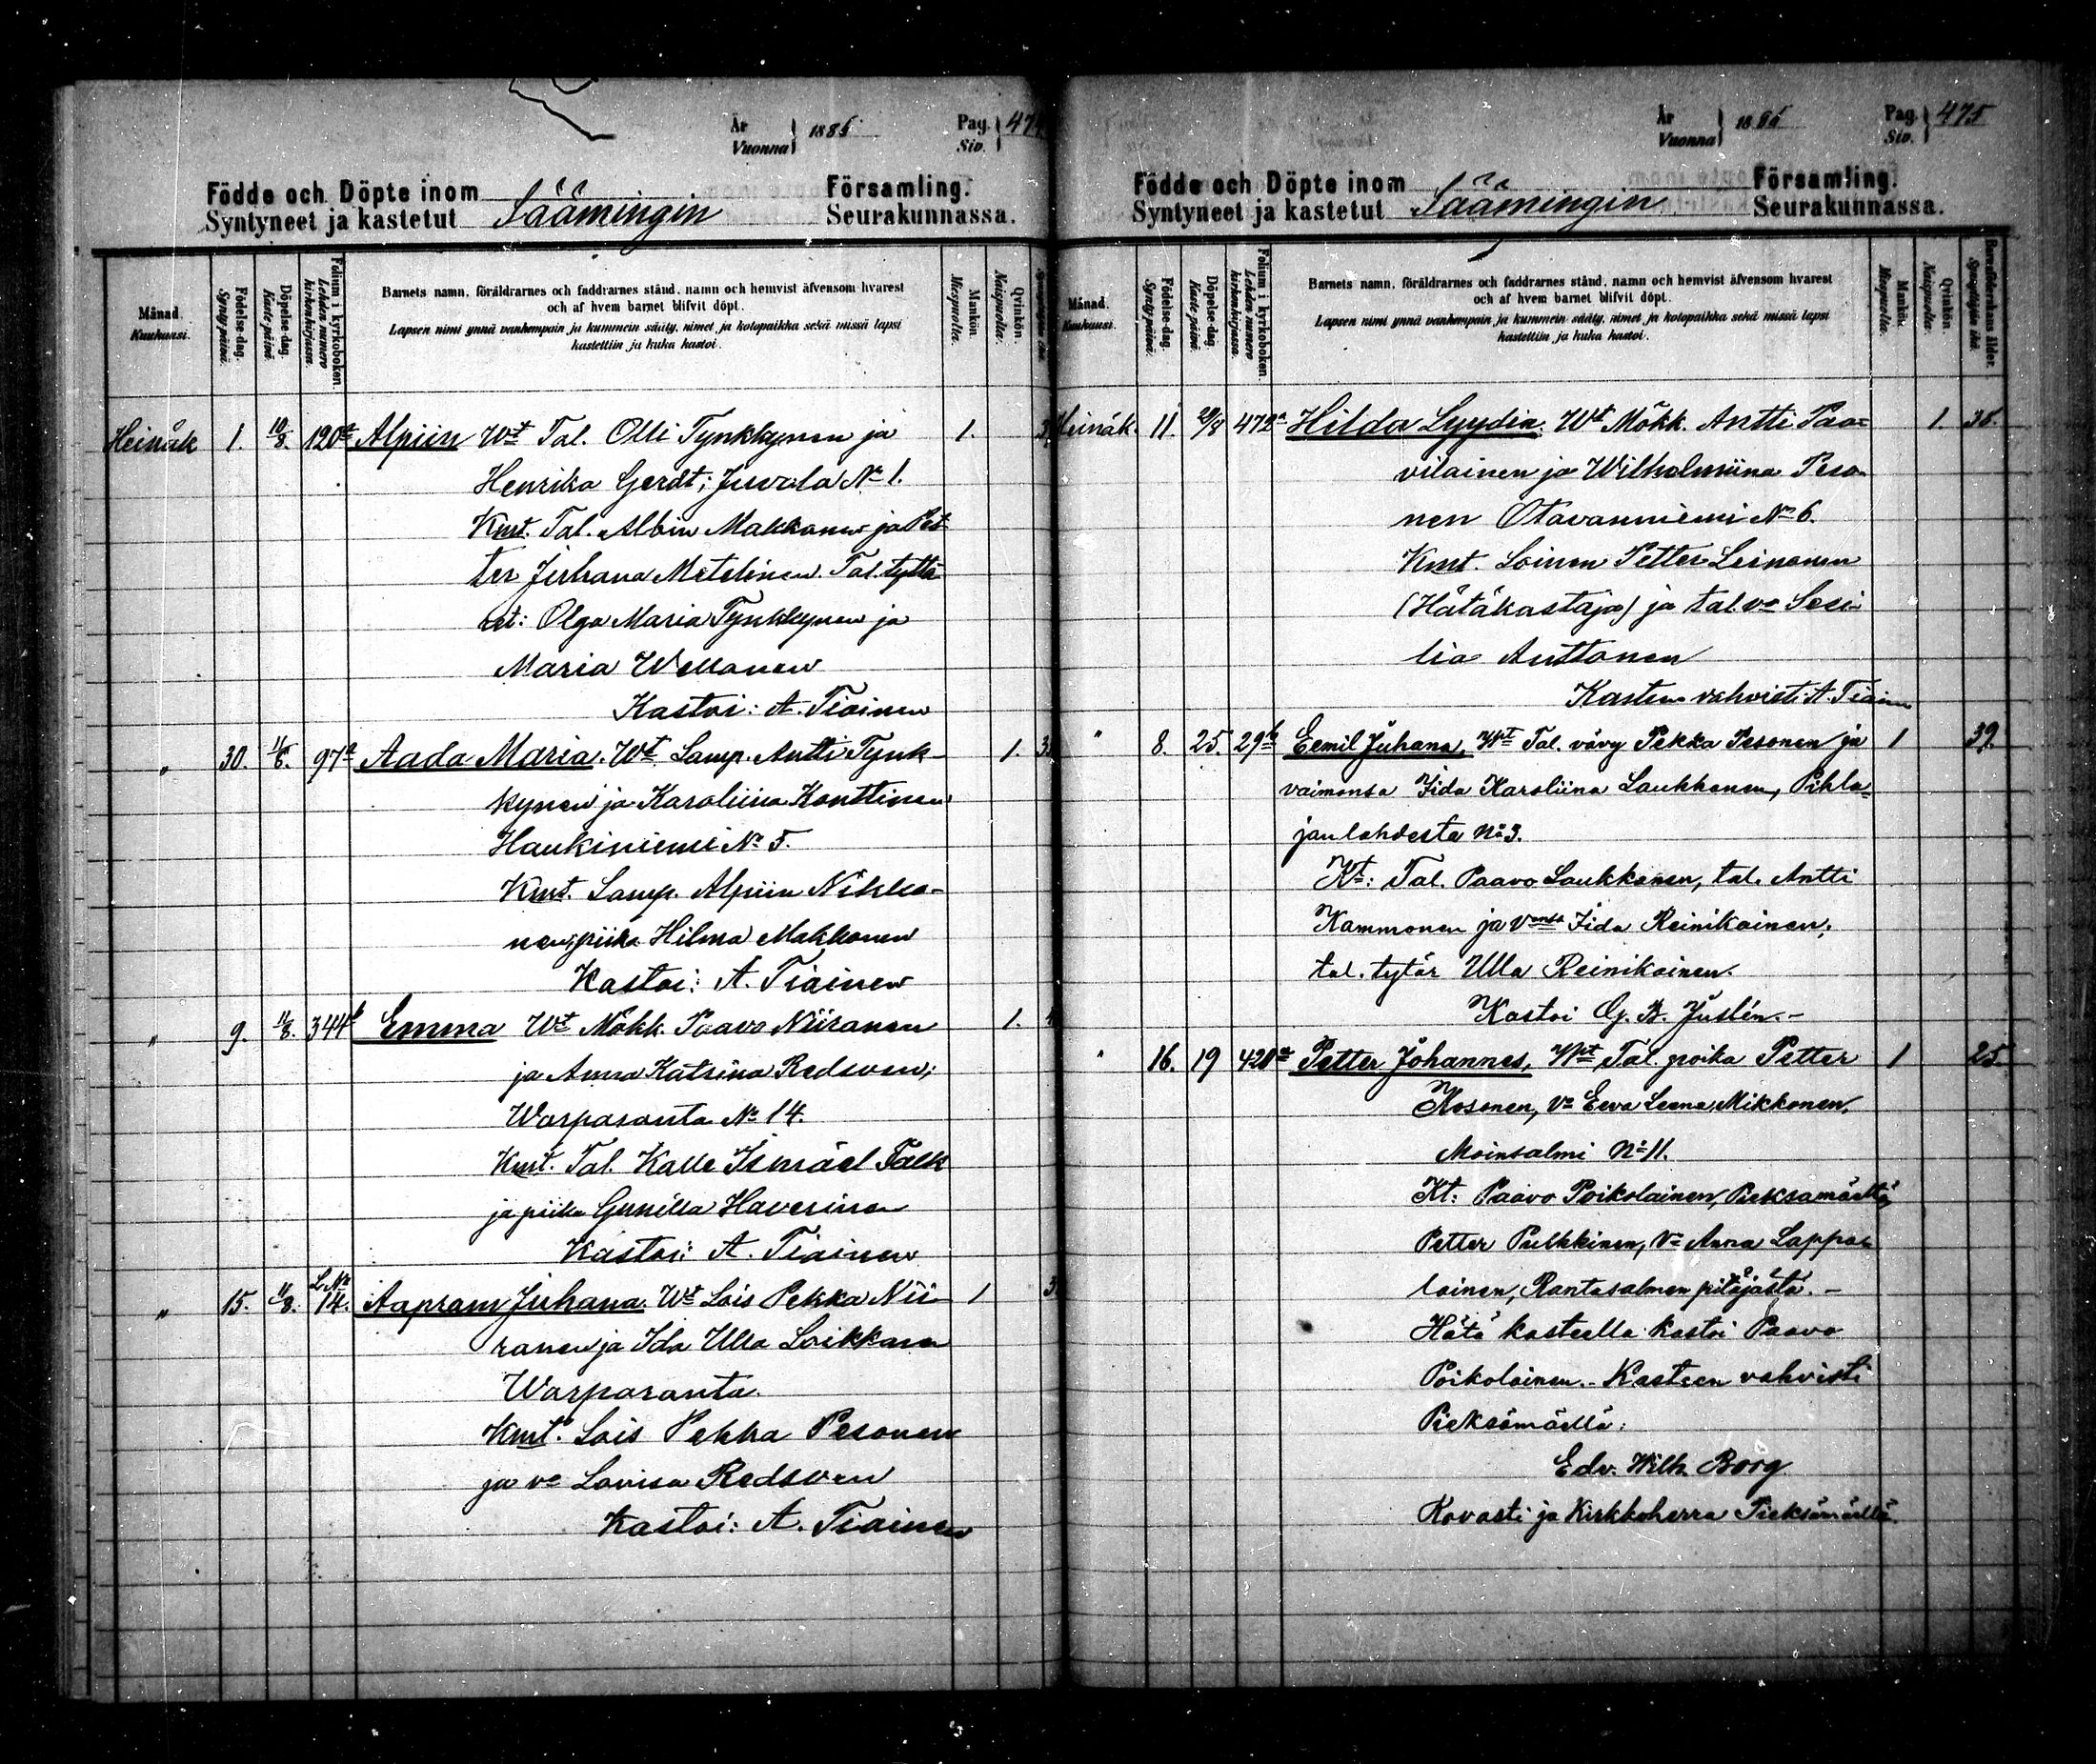 År
Vuonna
1885
Pag.
Siv.
Födde och Döpte inom Säämingin Församling.
Syntyneet ja kastetut Seurakunnassa.
Månad. Kuukausi.
Födelse-dag. Synty-päivä.
Döpelse-dag. Kaste-päivä.
Folium i kyrkoboken. Lehden numero kirkonkirjassa.
Barnets namn, föräldrarnes och faddrarnes stånd, namn och hemvist äfvensom hvarest
och af hvem barnet blifvit döpt.
Lapsen nimi ynnä vanhempain ja kummein sääty, nimet ja kotopaikka sekä missä lapsi
kastettiin ja kuka kastoi.
Mankön. Miespuolia.
Qvinkön. Naispuolia.
Heinäk 1. 10/8. 120a Alpiin Wt Tal. Olli Tynkkynen ja 1.
Henrika Gerdt; Juvola No 1.
Kmt. Tal. Albin Makkonen ja Pet
ter Juhana Metelinen. Tal. tyttä
ret: Olga Maria Tynkkynen ja
Maria Wellonen
Kastoi: A. Tiainen
" 30. 97a Aada Maria. Wt Lamp. Antti Tynk- 1.
kynen ja Karoliina Konttinen
Haukiniemi No 5.
Kmt. Lamp. Alpiin Nikko-
nen, piika Hilma Makkonen
Kastoi: A. Tiainen
" 9. 11/8. 344b Emma Wt Mökk. Paavo Niiranen 1.
ja Anna Katrina Redsven;
Warparanta No 14.
Kmt. Tal. Kalle Ismäel Falk
ja piika Gunilla Haverinen
Kastoi: A. Tiainen
" 15. 11/8. L. No 14. Aapram Juhana. Wt Lois Pekka Nii- 1
ranen ja Ida Ulla Loikkanen
Warparanta.
Kmt. Lois Pekka Pesonen
ja vo Lovisa Redsven
Kastoi: A. Tiainen
År
Vuonna
1885
Pag. 475
Siv.
Födde och Döpte inom Säämingin Församling.
Syntyneet ja kastetut Seurakunnassa.
Månad. Kuukausi.
Födelse-dag. Synty-päivä.
Döpelse-dag. Kaste-päivä.
Folium i kyrkoboken. Lehden numero kirkonkirjassa.
Barnets namn, föräldrarnes och faddrarnes stånd, namn och hemvist äfvensom hvarest
och af hvem barnet blifvit döpt.
Lapsen nimi ynnä vanhempain ja kummein sääty, nimet ja kotopaikka sekä missä lapsi
kastettiin ja kuka kastoi.
Mankön. Miespuolia.
Qvinkön. Naispuolia.
Barnaföderskans ålder. Synnyttäjän ikä.
Heinäk. 11. 472a Hilda Lyydia. Wt Mökk. Antti Paa= 1. 36.
vilainen ja Wilhelmiina Peso
nen Otavanniemi No 6.
Kmt. Loinen Petter Leinonen
(Hätäkastaja) ja tal. vo Sesi
lia Anttonen
Kasteen vahvisti A. Tiainen
" 8. 25. 29b Eemil Juhana, Wpt Tal. vävy Pekka Pesonen ja 1 39.
vaimonsa Iida Karoliina Laukkanen, Pihla-
janlahdesta No 3.
Kt: Tal. Paavo Laukkanen, tal. Antti
Kammonen ja vonsa Iida Reinikainen,
tal. tytär Ulla Reinikainen.
Kastoi G. B. Juslén.-
" 16. 19 420a Petter Johannes, Wpt Tal. poika Petter 1 25.
Kosonen, vo Eeva Leena Mikkonen,
Moinsalmi No 11.
Kt: Paavo Poikolainen, Pieksamäeltä,
Petter Pulkkinen, vo Anna Lappa-
lainen, Rantasalmen pitäjästä.-
Hätä kasteella kastoi Paavo
Poikolainen.- Kasteen vahvisti
Pieksämäellä:
Edv. Wilh. Borg
Rovasti ja Kirkkoherra Pieksämäellä.